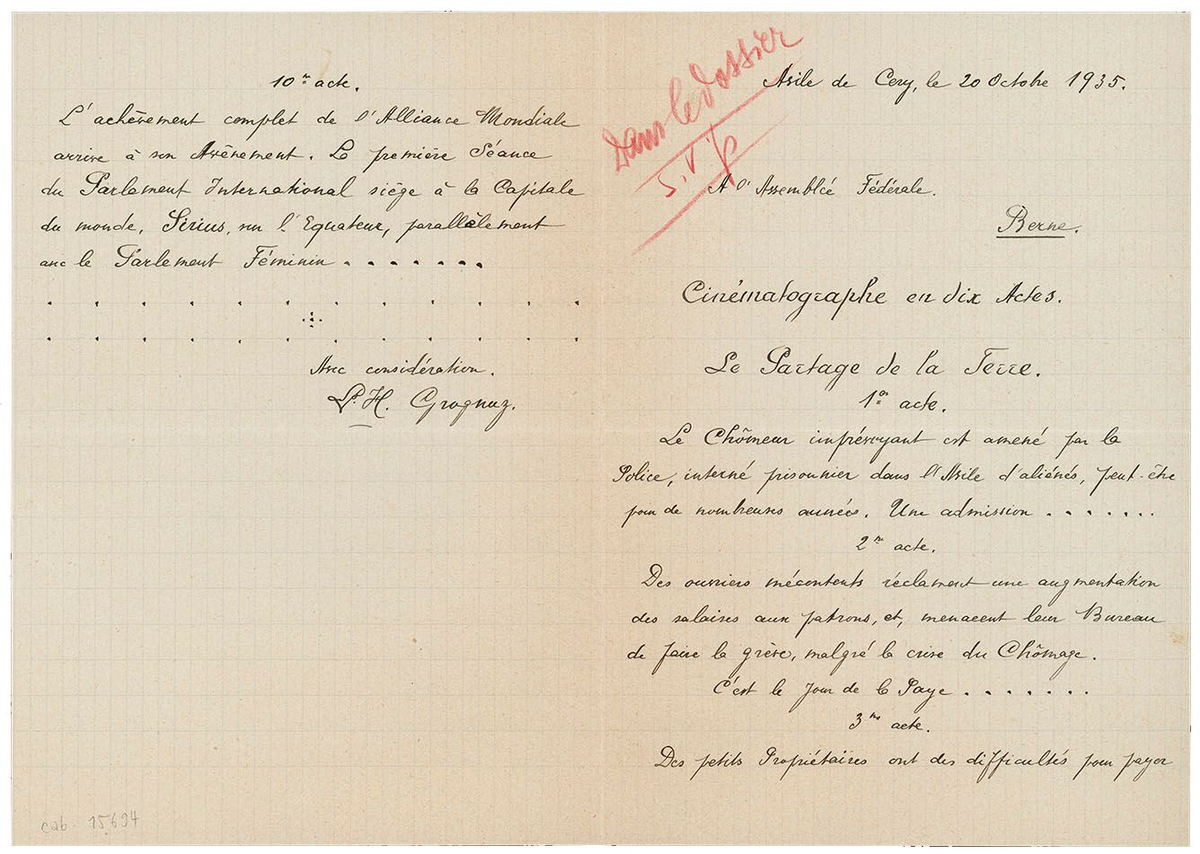 10me acte.
L'achèvement complet de l'Alliance Mondiale
arrive à son Avènement. La première Séance
du Parlement International siège à la Capitale
du monde, Sirius, sur l'Equateur, parallèlement
avec le Parlement Féminin . . . . . . .
. . . . . . . . . . . .
. . . . . . . . . . . .
Avec considération.
P. H. Grognuz.
cab. 15694
Dans le dossier
s.v.p
Asile de Cery, le 20 Octobre 1935.
A l'Assemblée Fédérale.
Berne.
Cinématographe en dix Actes.
Le Partage de la Terre.
1er acte.
Le Chômeur imprévoyant est amené par la
Police, interné prisonnier dans l'Asile d'aliénés, peut-être
pour de nombreuses années. Une admission . . . . . . .
2me acte.
Des ouvriers mécontents réclament une augmentation
des salaires aux patrons, et, menacent leur Bureau
de faire la grève, malgré la crise du Chômage.
C'est le Jour de la Paye . . . . . . .
3me acte.
Des petits Propriétaires ont des difficultés pour payer